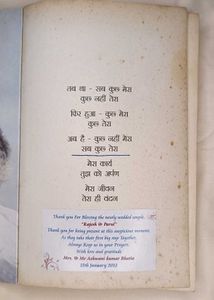 तब था - सब कुछ मेरा
कुछ नहीं तेरा
फिर हुआ - कुछ मेरा
कुछ तेरा
अब है - कुछ नहीं मेरा
सब कुछ तेरा
मेरा कार्य
तुझ को अर्पण
मेरा जीवन
तेरा ही वंदन
Thank you For Blessing the newly wedded couple.
"Rajesh & Parul"
Thank you for being present at this auspicious moment.
As they take their first big step Together.
Always Keep us in your Prayers.
With love and gratitude
Mrs. & Mr Ashwani kumar Bhatia